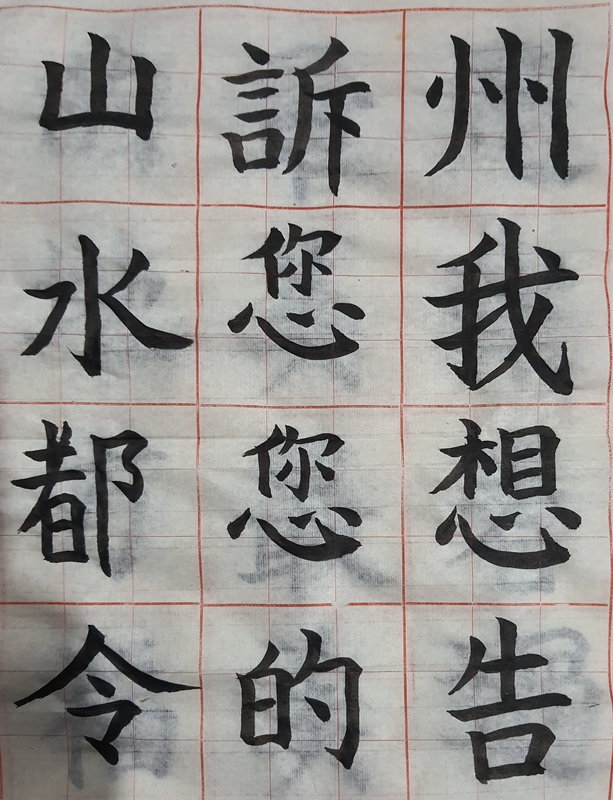 州我想告
訴您您的
山水都令